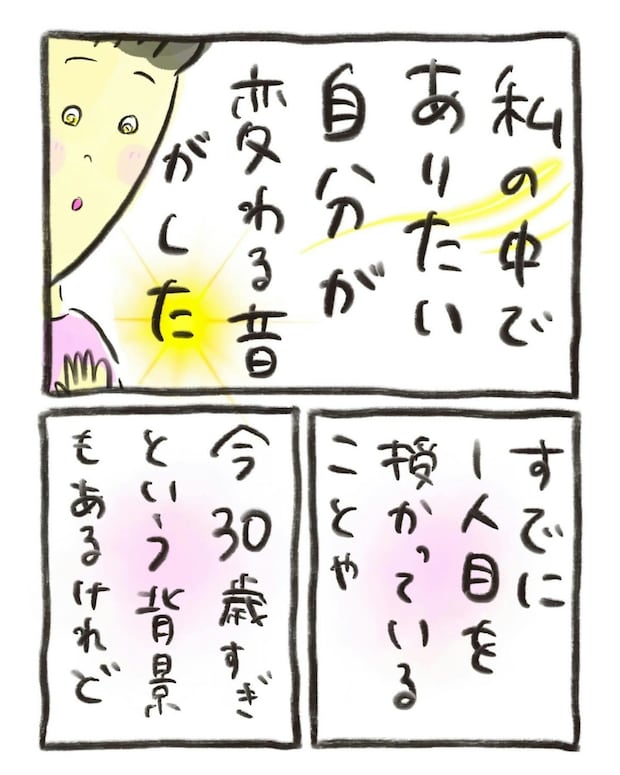 私の中で
ありたい
自分が
変わる音
がした
すでに
1人目を
授かっている
ことや
今30歳すぎ
という背景
もあるけれど